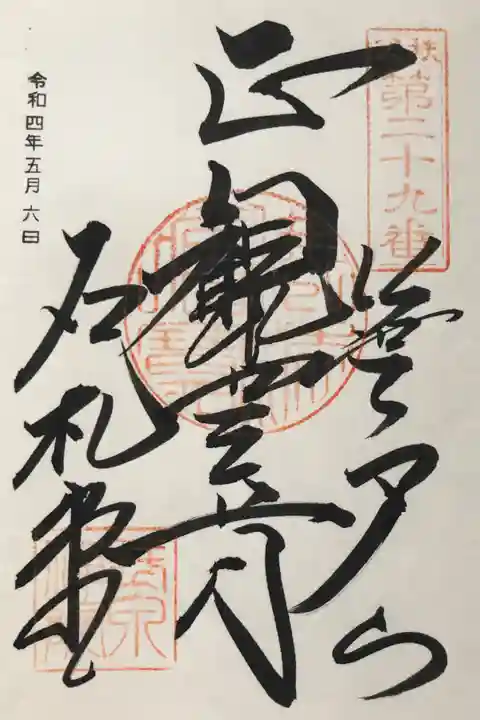 秩父
第二十九番
笹戸山
正觀世音
石札堂
令和四年五月六日